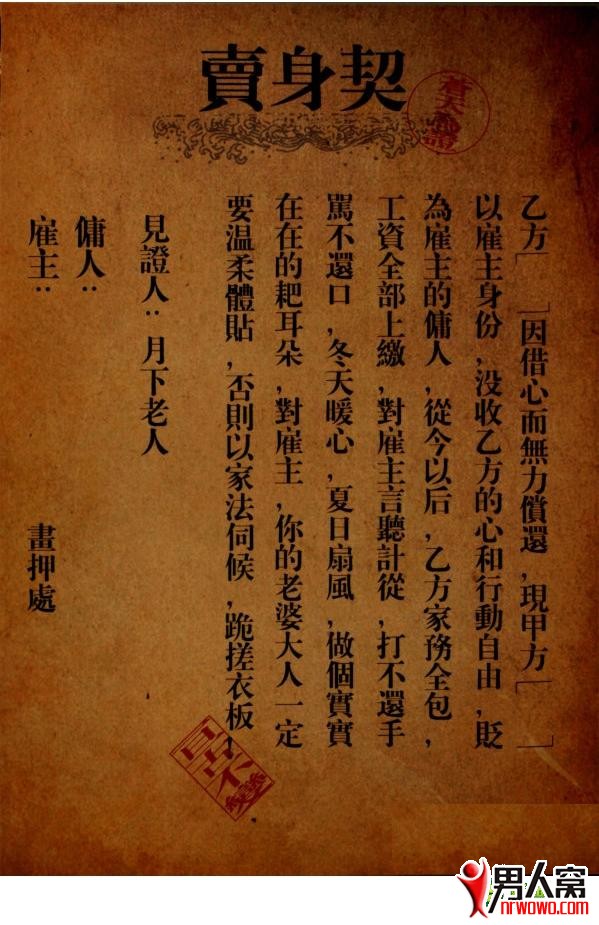 賣身契
蒼天為證
乙方[ ]因借心而無力償還,現甲方[ ]
以雇主身份,没收乙方的心和行動自由,貶
為雇主的傭人,從今以后,乙方家務全包,
工資全部上繳,對雇主言聽計從,打不還手
駡不還口,冬天暖心,夏日扇風,做個實實
在在的耙耳朵,對雇主,你的老婆大人一定
要温柔體貼,否則以家法伺候,跪搓衣板!
見證人:月下老人
傭人:
雇主: 畫押處
男人窝
nrwowo.com